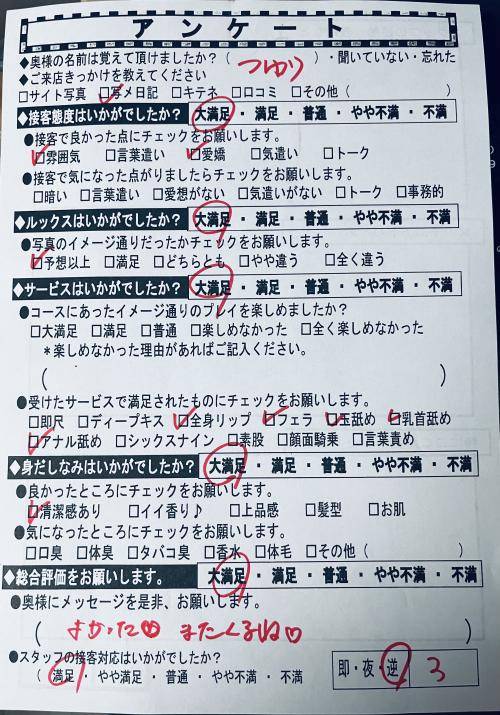 アンケート
◆奥様の名前は覚えて頂けましたか?( つかり )・聞いていない・忘れた
◆ご来店きっかけを教えてください
□サイト写真 □写メ日記 □キテネ □口コミ □その他( )
◆接客態度はいかがでしたか? 大満足・満足・普通・やや不満・不満
●接客で良かった点にチェックをお願いします。
□雰囲気 □言葉遣い □愛嬌 □気遣い □トーク
●接客で気になった点がありましたらチェックをお願いします。
□暗い □言葉遣い □愛想がない □気遣いがない □トーク □事務的
◆ルックスはいかがでしたか? 大満足・満足・普通・やや不満・不満
●写真のイメージ通りだったかチェックをお願いします。
□予想以上 □満足 □どちらとも □やや違う □全く違う
◆サービスはいかがでしたか? 大満足・満足・普通・やや不満・不満
●コースにあったイメージ通りのプレイを楽しめましたか?
□大満足 □満足 □普通 □楽しめなかった □全く楽しめなかった
*楽しめなかった理由があればご記入ください。
( )
●受けたサービスで満足されたものにチェックをお願いします。
□即尺 □ディープキス □全身リップ □フェラ □玉舐め □乳首舐め
□アナル舐め □シックスナイン □素股 □顔面騎乗 □言葉責め
◆身だしなみはいかがでしたか? 大満足・満足・普通・やや不満・不満
●良かったところにチェックをお願いします。
□清潔感あり □イイ香り♪ □上品感 □髪型 □お肌
●気になったところにチェックをお願いします。
□口臭 □体臭 □タバコ臭 □香水 □体毛 □その他( )
◆総合評価をお願いします。 大満足・満足・普通・やや不満・不満
●奥様にメッセージを是非、お願いします。
( よかった♡ またくるね♡ )
●スタッフの接客対応はいかがでしたか?
( 満足・やや満足・普通・やや不満・不満
即・夜・逆 3